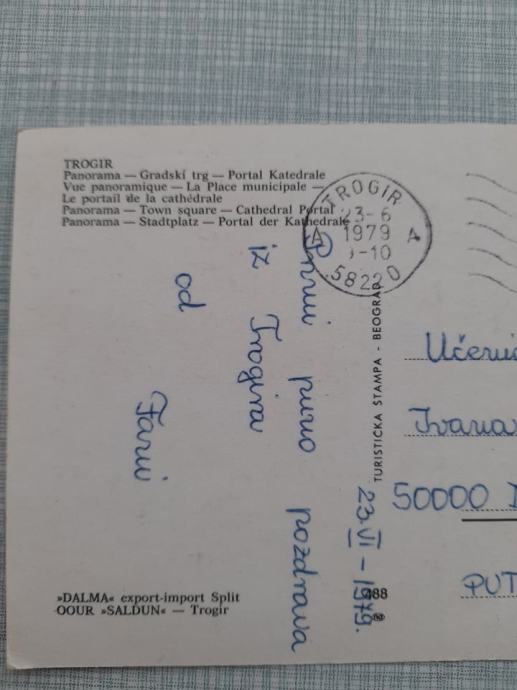 TROGIR
Panorama — Gradski trg — Portal Katedrale
Vue panoramique — La Place municipale —
Le portail de la cathédrale
Panorama — Town square — Cathedral Portal
Panorama — Stadtplatz — Portal der Kathedrale
TROGIR
23-6
1979
-10
A A
58220
Primi puno pozdrava
iz Trogira
od
23. VI – 1979.
TURISTICKA ŠTAMPA - BEOGRAD
Ivana
50000
PUT
»DALMA« export-import Split
OOUR »SALDUN« — Trogir
488